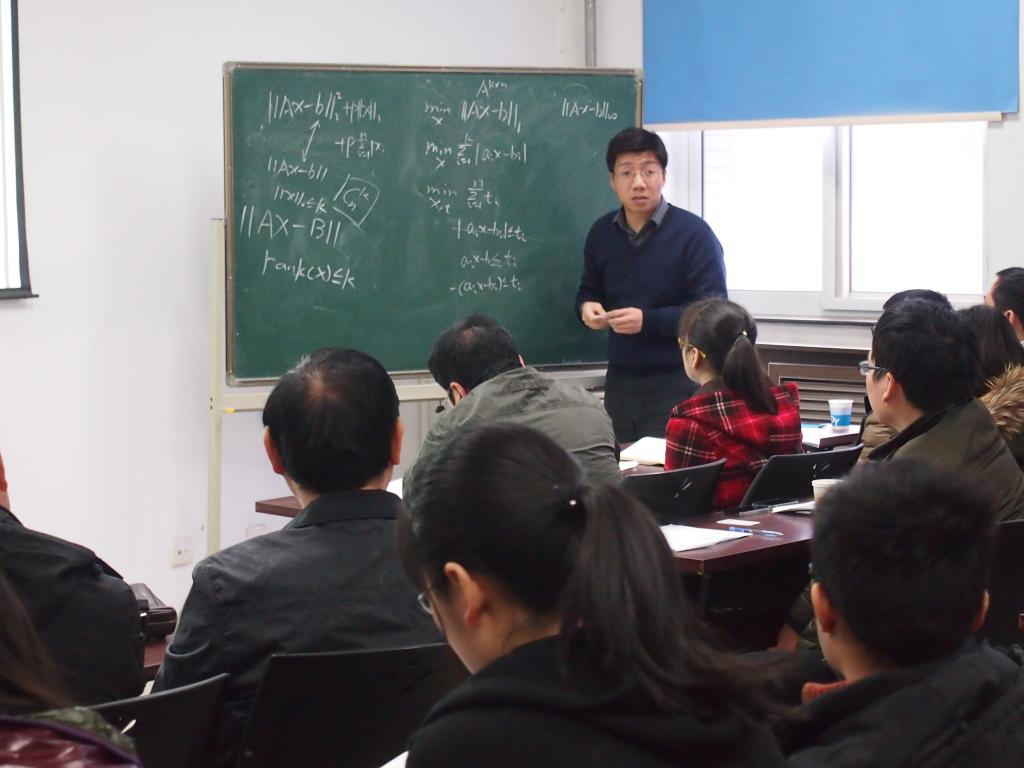 ||Ax-b||₂² + ρ||x||₁
+ρ Σᵢ₌₁ⁿ |xᵢ
||Ax-b||
||x||₀≤k
Cₙᵏ
||AX-B||
rank(X)≤k
Aᵏˣⁿ
min_x ||Ax-b||₁
min_x Σᵢ₌₁ᵏ |aᵢx-bᵢ|
min_{x,t} Σᵢ₌₁ᵐ tᵢ
|aᵢx-bᵢ|≤tᵢ
aᵢx-bᵢ≤tᵢ
-(aᵢx-bᵢ)≤tᵢ
||Ax-b||∞